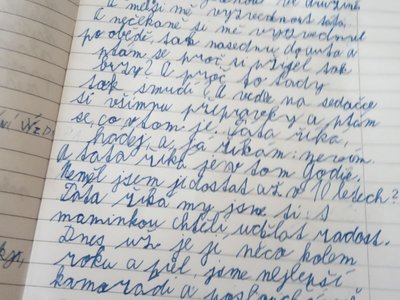 mě vyzvednout táta.
A nečekaně si mě vyzvednul
po obědě, tak nasednu do auta a
ptám se proč si přijel tak
brzy? A proč to tady
tak smrdí? A vedle na sedačce
si všimnu přepravky a ptám
se, co v tom je. Táta říká,
hádej, a já říkám: nevím.
A táta říká je v tom
Neměl jsem jí dostat až v 10 letech?
Táta říká my jsme ti s
maminkou chtěli udělat radost.
Dnes už je jí něco kolem
roku a půl, jsme nejlepší
kamarádi a